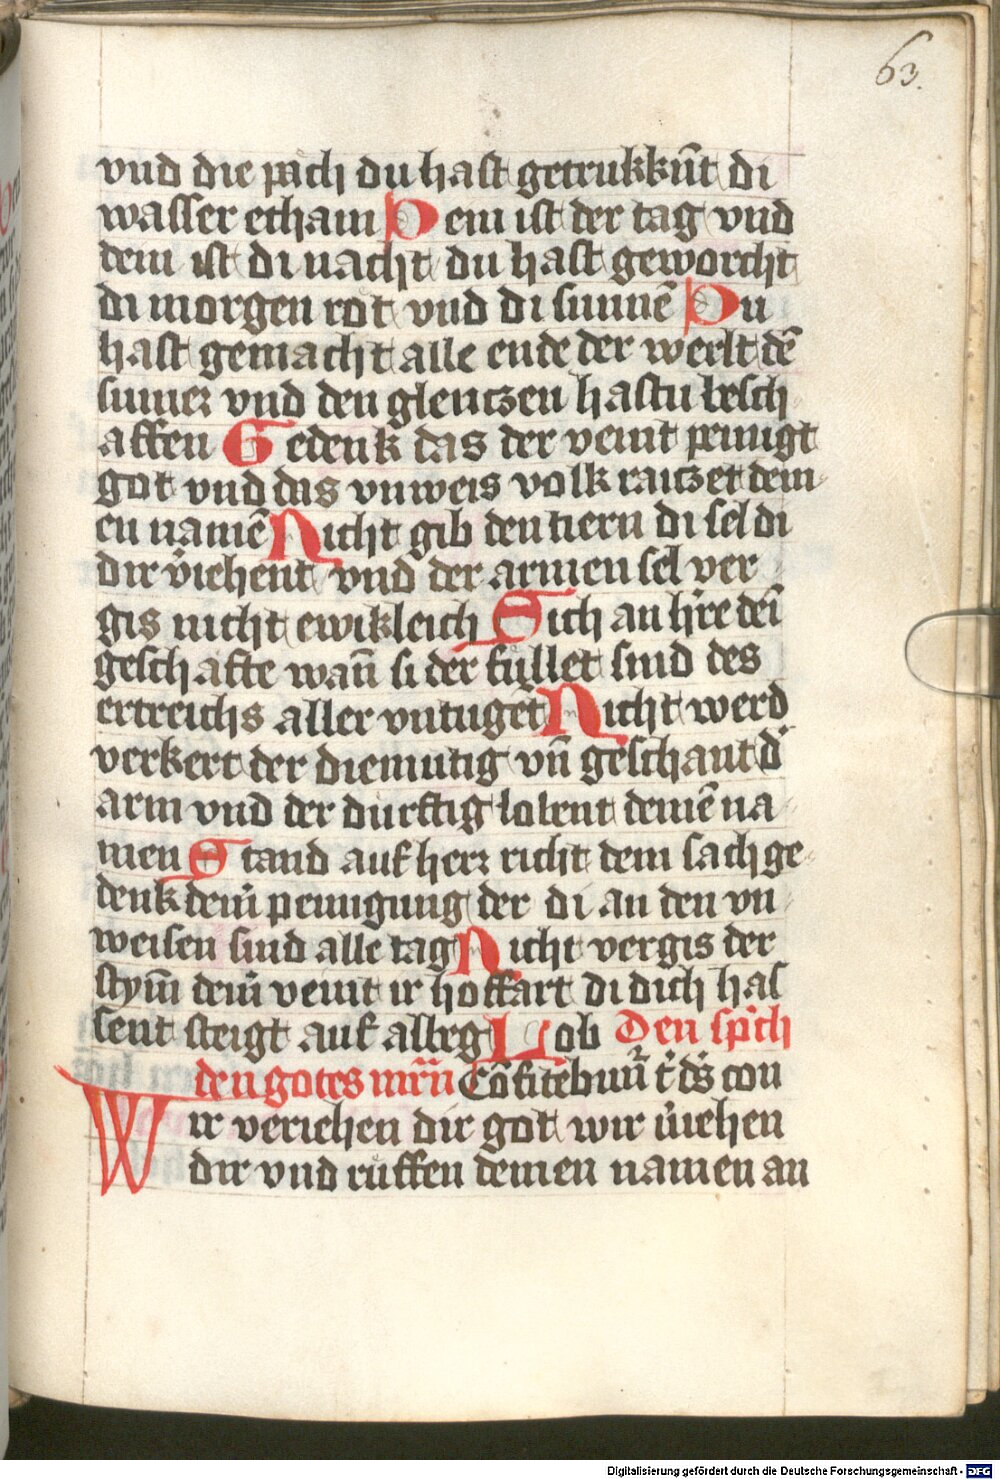 63.
vnd die päch du hast getrukkñt di
wasser etham Dem ist der tag vnd
dem ist di nacht du hast geworcht
di morgen rot vnd di sunnē Du
hast gemacht alle ende der werlt dē
sumer vnd den glentzen hastu besch
affen Gedenk das der veint peinigt
got vnd das vnweis volk raitzet dein
en namē Nicht gib den tiern di sel di
dir v̓iehent vnd der armen sel ver
gis nicht ewikleich Sich an h̓re dei̅
geschäfte wan̄ si der füllet sind des
ertreichs aller vntugēt Nicht werd
verkert der diemutig vn̄ geschant d̓
arm vnd der durftig lobent deinē na
men Stand auf herr richt dein sach ge
denk dein̓ peinigung der di an den vn
weisen sind alle tag Nicht vergis der
stym̄ dein̓ veint ir hoffart di dich has
sent steigt auf albeg Lob Den sp̓ch
den gotes mr̄n Cōfitebim̓ t̓ ds̓ con
Wir veriehen dir got wir v̓iehen
dir vnd rüffen deinen namen an
Digitalisierung gefördert durch die Deutsche Forschungsgemeinschaft - DFG